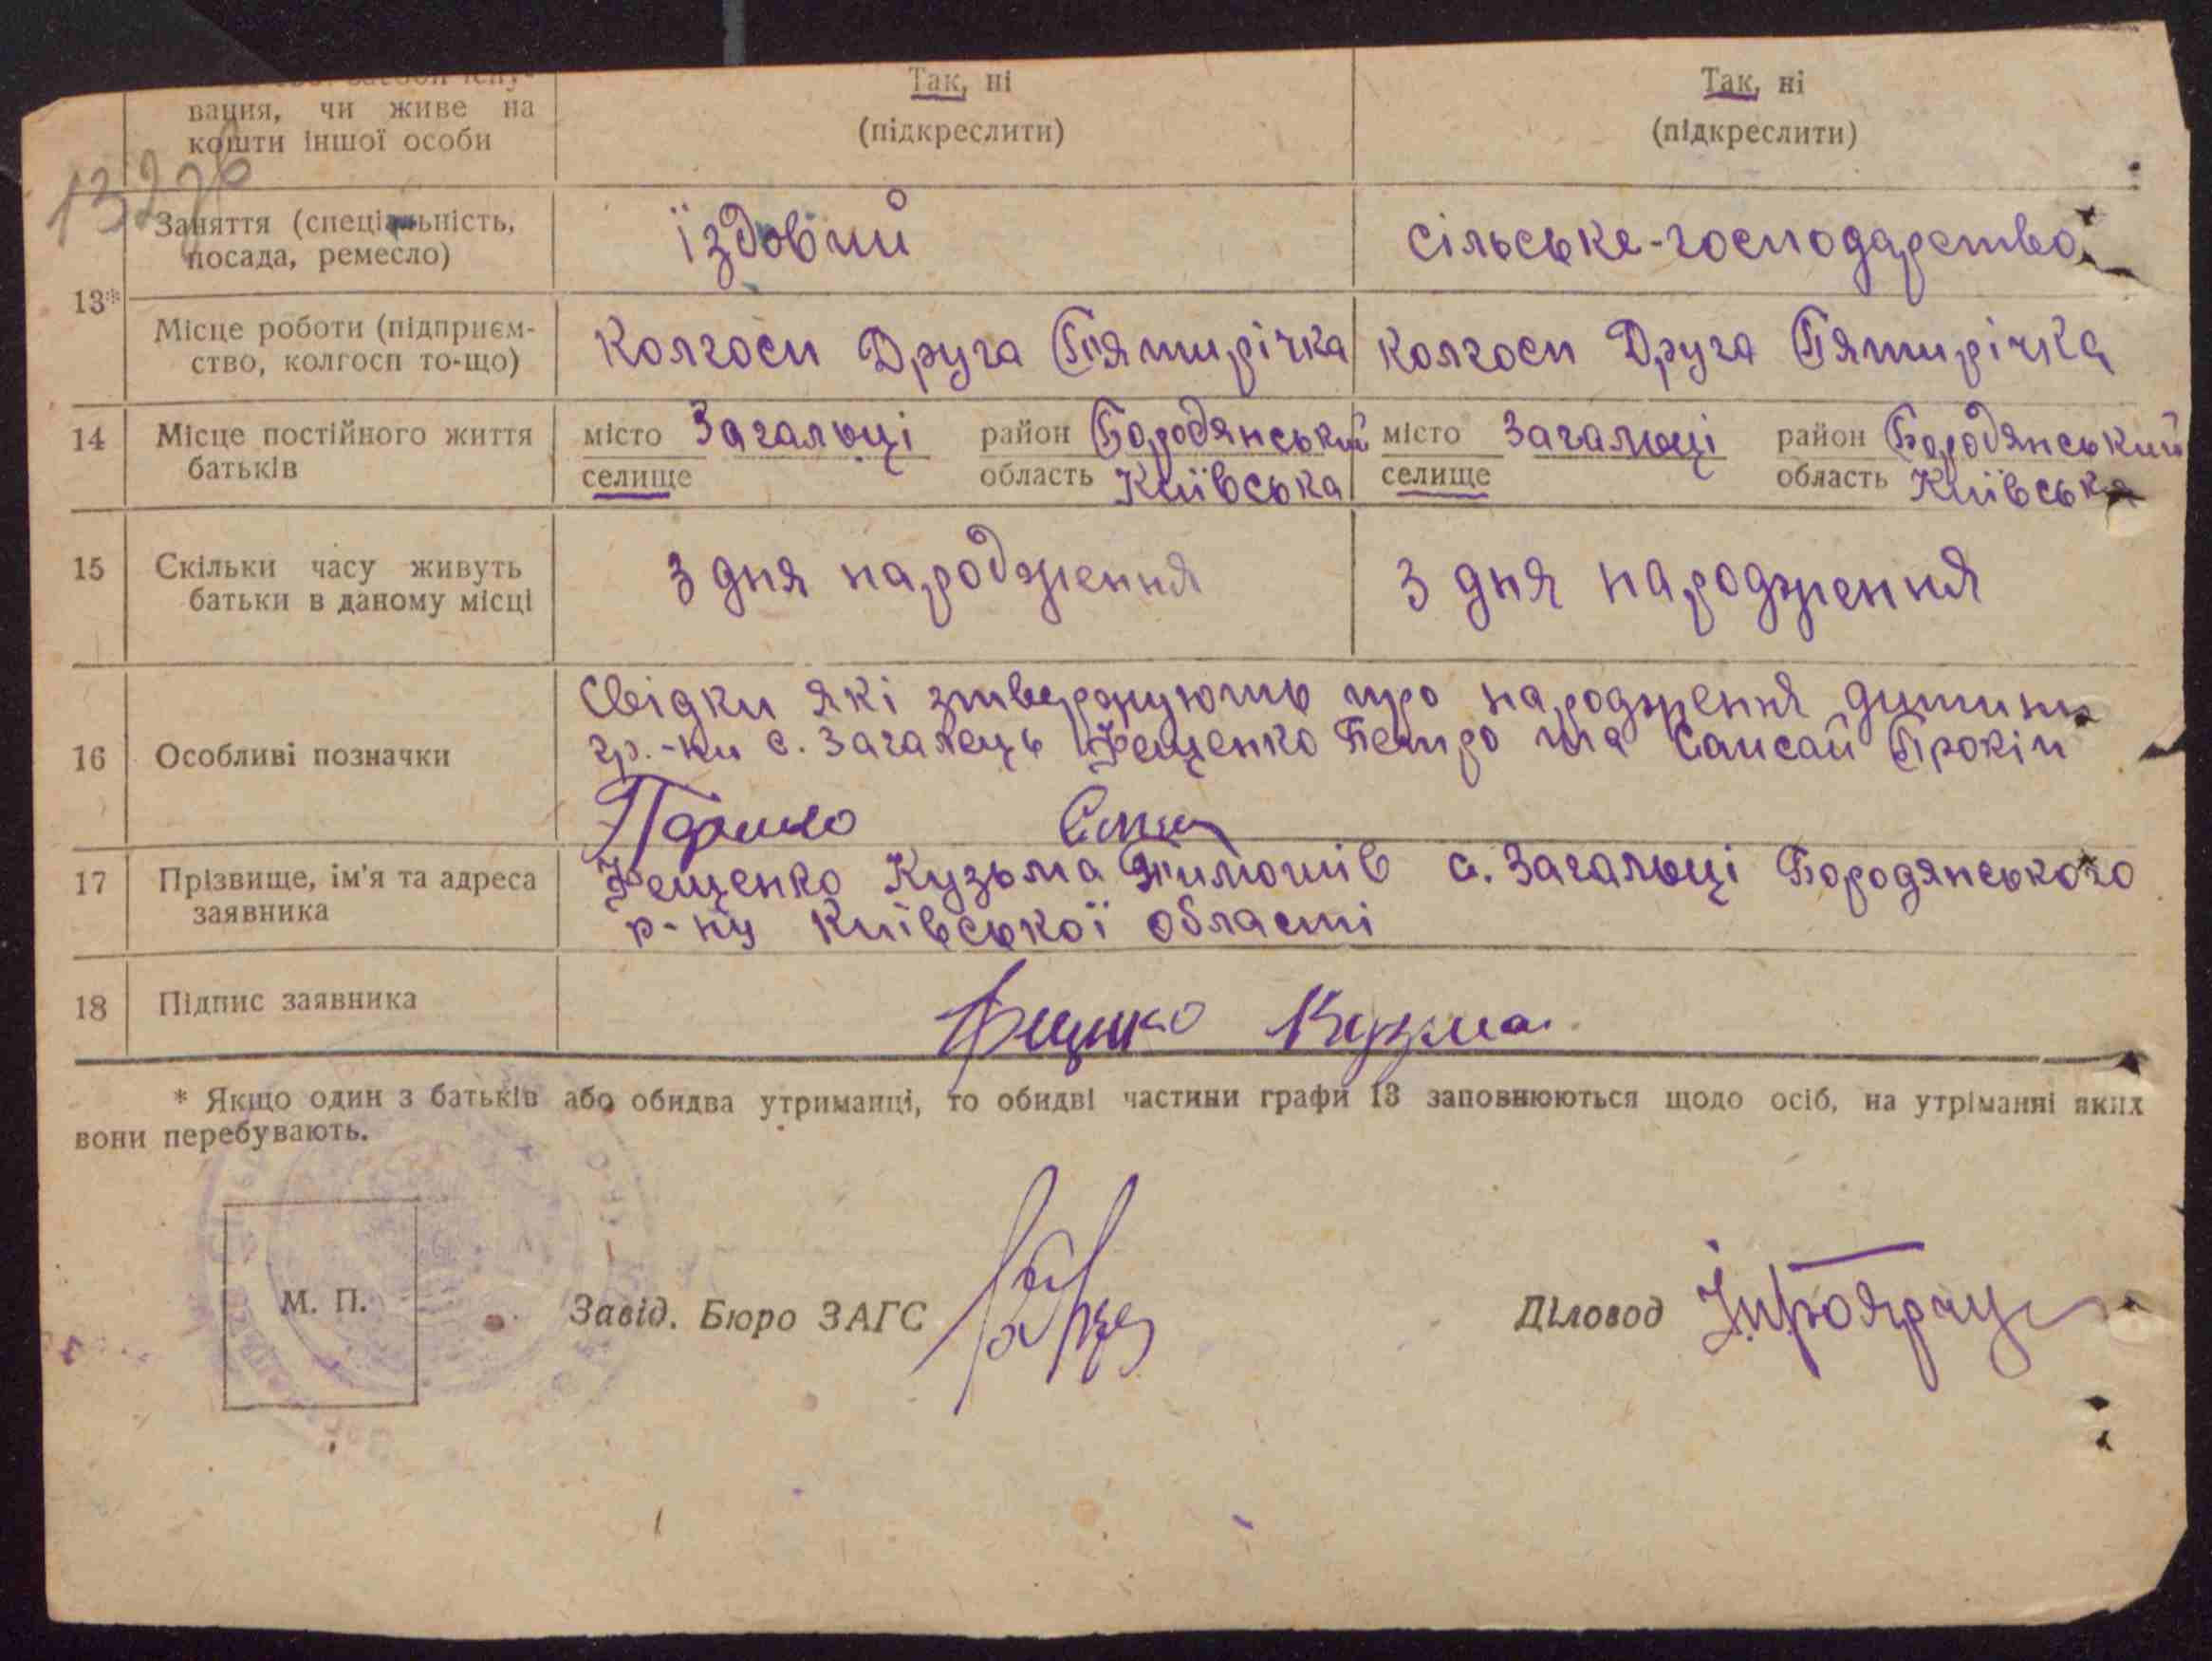 вання, чи живе на
кошти іншої особи
Так, ні
(підкреслити)
Так, ні
(підкреслити)
13*
Заняття (спеціальність,
посада, ремесло)
їздовий
сільське-господарство
Місце роботи (підприєм-
ство, колгосп то-що)
Колгосп Друга Пятирічка
Колгосп Друга Пятирічка
14
Місце постійного життя
батьків
місто Загальці район Бородянський
селище область Київська
місто Загальці район Бородянський
селище область Київська
15
Скільки часу живуть
батьки в даному місці
З дня народження
З дня народження
16
Особливі позначки
Свідки які зтверджують про народження дитини
гр.-ни с. Загалець Фещенко Петро та Сапсай Прокіп
17
Прізвище, ім'я та адреса
заявника
Фещенко Кузьма Тимошів с. Загальці Бородянського
р-ну Київської області
18
Підпис заявника
Фещнко Кузма
* Якщо один з батьків або обидва утриманці, то обидві частини графи 13 заповнюються щодо осіб, на утріманні яких
вони перебувають.
М. П.
Завід. Бюро ЗАГС
Діловод